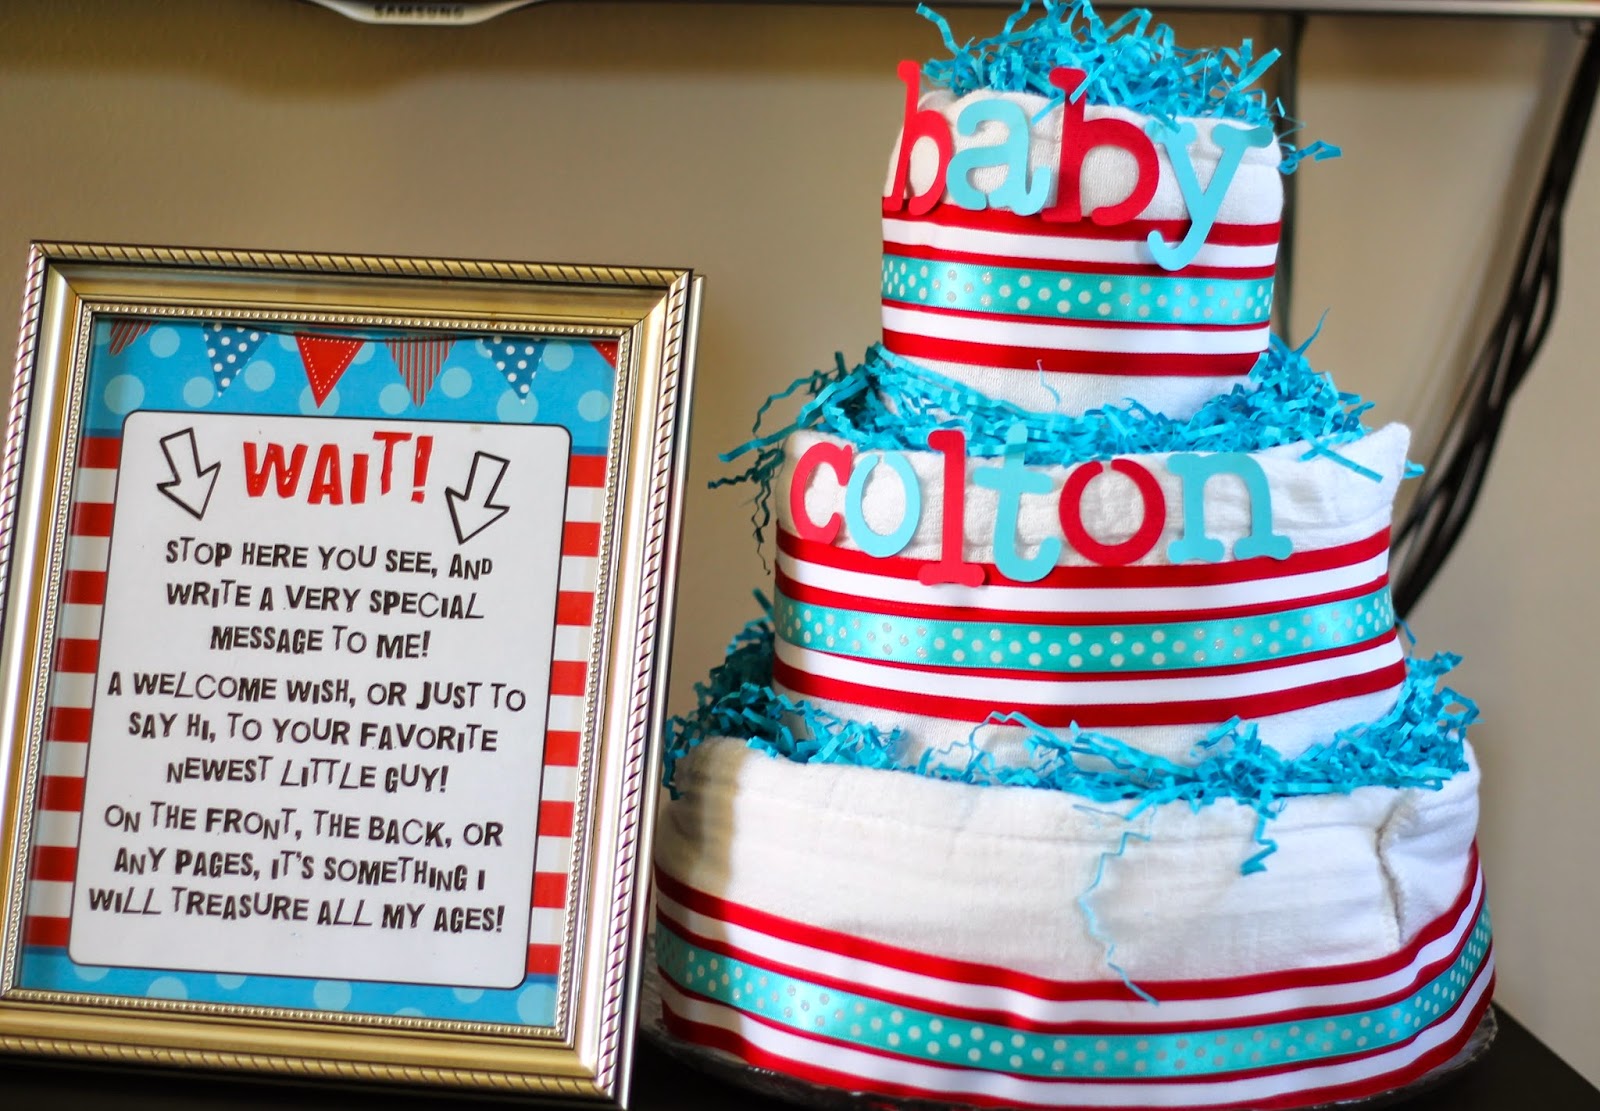 SAMSUNG
WAIT!
STOP HERE YOU SEE, AND
WRITE A VERY SPECIAL
MESSAGE TO ME!
A WELCOME WISH, OR JUST TO
SAY HI, TO YOUR FAVORITE
NEWEST LITTLE GUY!
ON THE FRONT, THE BACK, OR
ANY PAGES, IT'S SOMETHING I
WILL TREASURE ALL MY AGES!
baby
colton